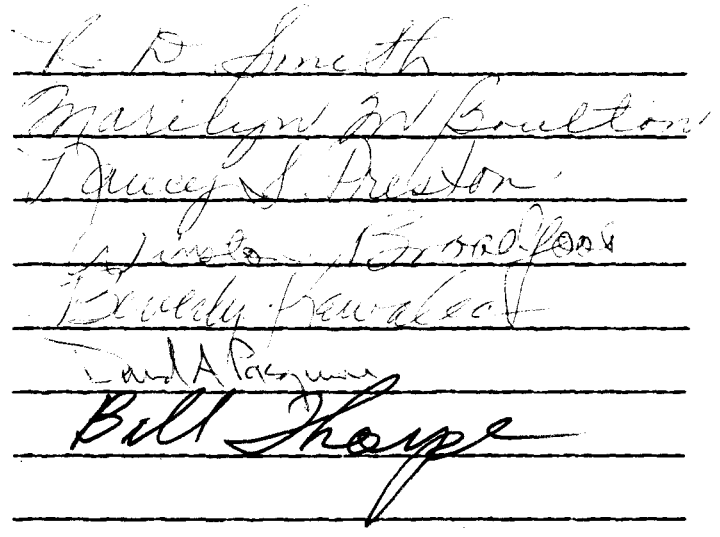 R. D. Smith
Marilyn M Boulton
Nancy S. Preston
Winston Broadfoot
Beverly
David A
Bill Thorpe